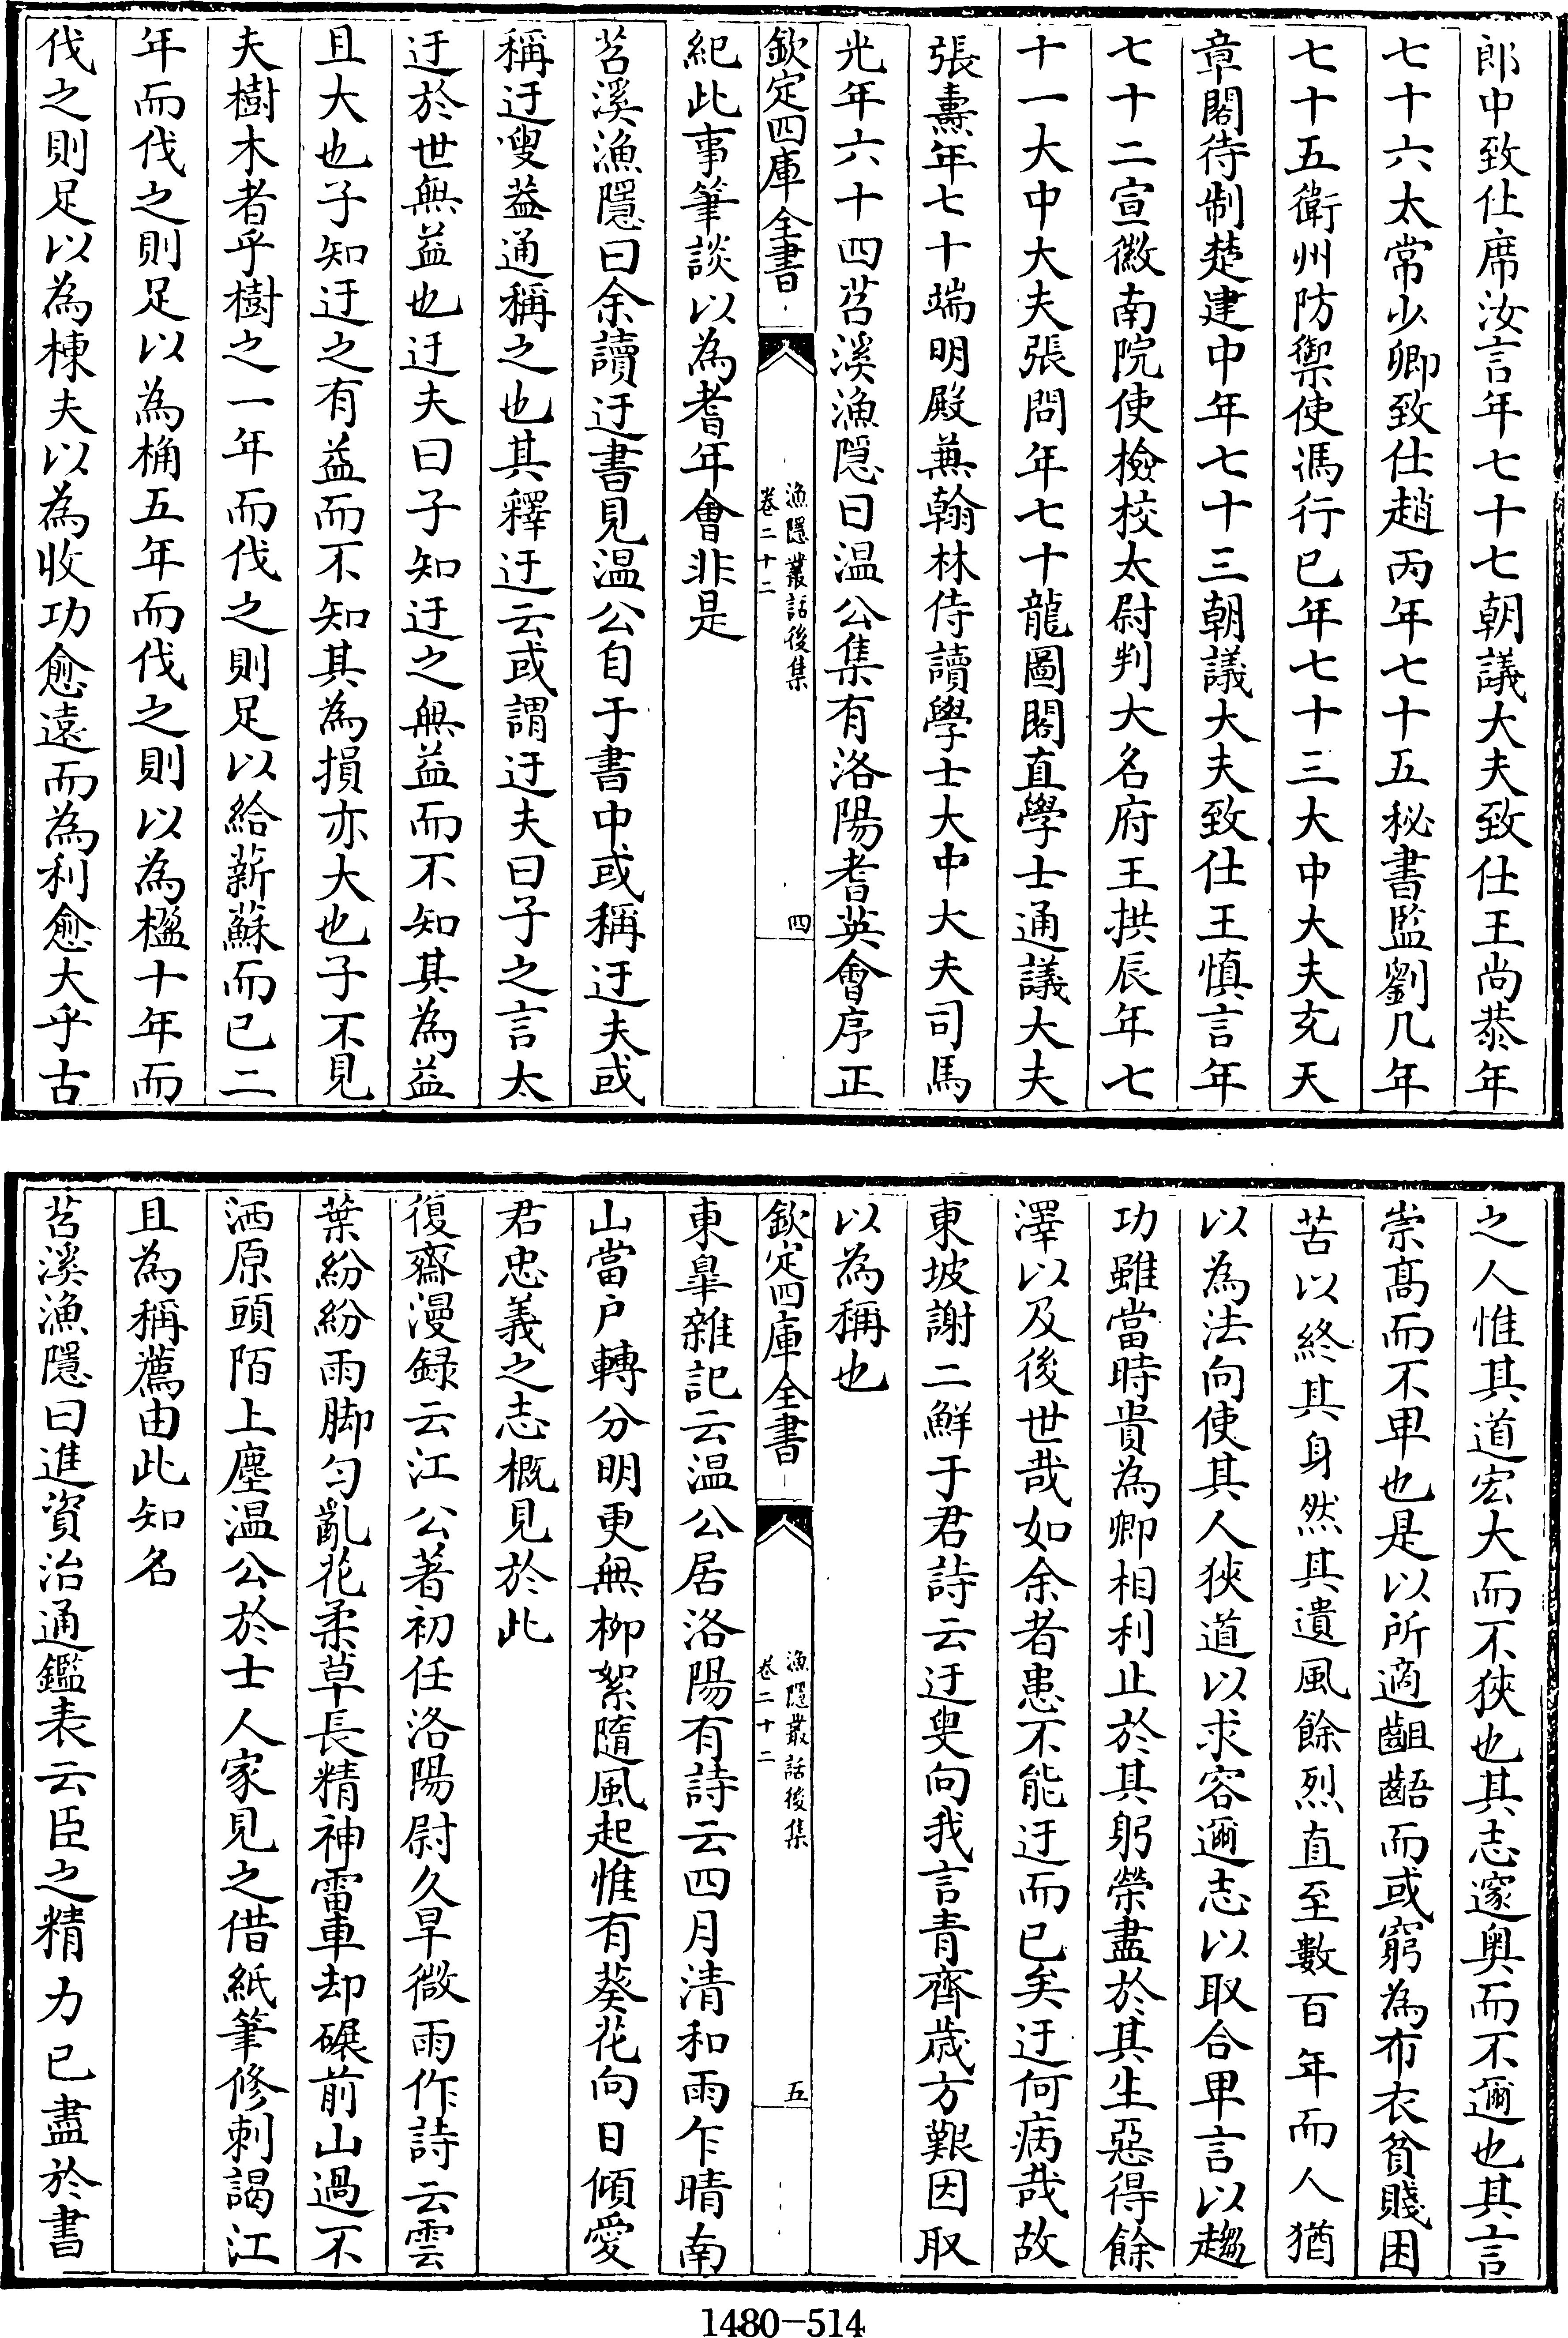 郎中致仕席汝言年七十七朝議大夫致仕王尚恭年
七十六太常少卿致仕趙丙年七十五秘書監劉几年
七十五衛州防禦使馮行已年七十三大中大夫充天
章閣待制楚建中年七十三朝議大夫致仕王慎言年
七十二宣徽南院使檢校太尉判大名府王拱辰年七
十一大中大夫張問年七十龍圖閣直學士通議大夫
張燾年七十端明殿兼翰林侍讀學士大中大夫司馬
光年六十四苕溪漁隱曰温公集有洛陽耆英會序正
欽定四庫全書
漁隱叢話後集
卷二十二
四
紀此事筆談以為耆年會非是
苕溪漁隱曰余讀迂書見温公自于書中或稱迂夫或
稱迂叟蓋通稱之也其釋迂云或謂迂夫曰子之言太
迂於世無益也迂夫曰子知迂之無益而不知其為益
且大也子知迂之有益而不知其為損亦大也子不見
夫樹木者乎樹之一年而伐之則足以給薪蘇而已二
年而伐之則足以為桷五年而伐之則以為楹十年而
伐之則足以為棟夫以為收功愈遠而為利愈大乎古
之人惟其道宏大而不狹也其志邃奥而不邇也其言
崇髙而不卑也是以所適齟齬而或窮為布衣貧賤困
苦以終其身然其遺風餘烈直至數百年而人猶
以為法向使其人狹道以求容邇志以取合卑言以趨
功雖當時貴為卿相利止於其躬榮盡於其生惡得餘
澤以及後世哉如余者患不能迂而已矣迂何病哉故
東坡謝二鮮于君詩云迂叟向我言青齊歳方艱因取
以為稱也
欽定四庫全書
漁隱叢話後集
卷二十二
五
東臯雜記云温公居洛陽有詩云四月清和雨乍晴南
山當户轉分明更無柳絮隨風起惟有葵花向日傾愛
君忠義之志概見於此
復齋漫録云江公著初任洛陽尉久旱微雨作詩云雲
葉紛紛雨脚匀亂花柔草長精神雷車却碾前山過不
洒原頭陌上塵温公於士人家見之借紙筆修刺謁江
且為稱薦由此知名
苕溪漁隱曰進資治通鑑表云臣之精力已盡於書
1480-514